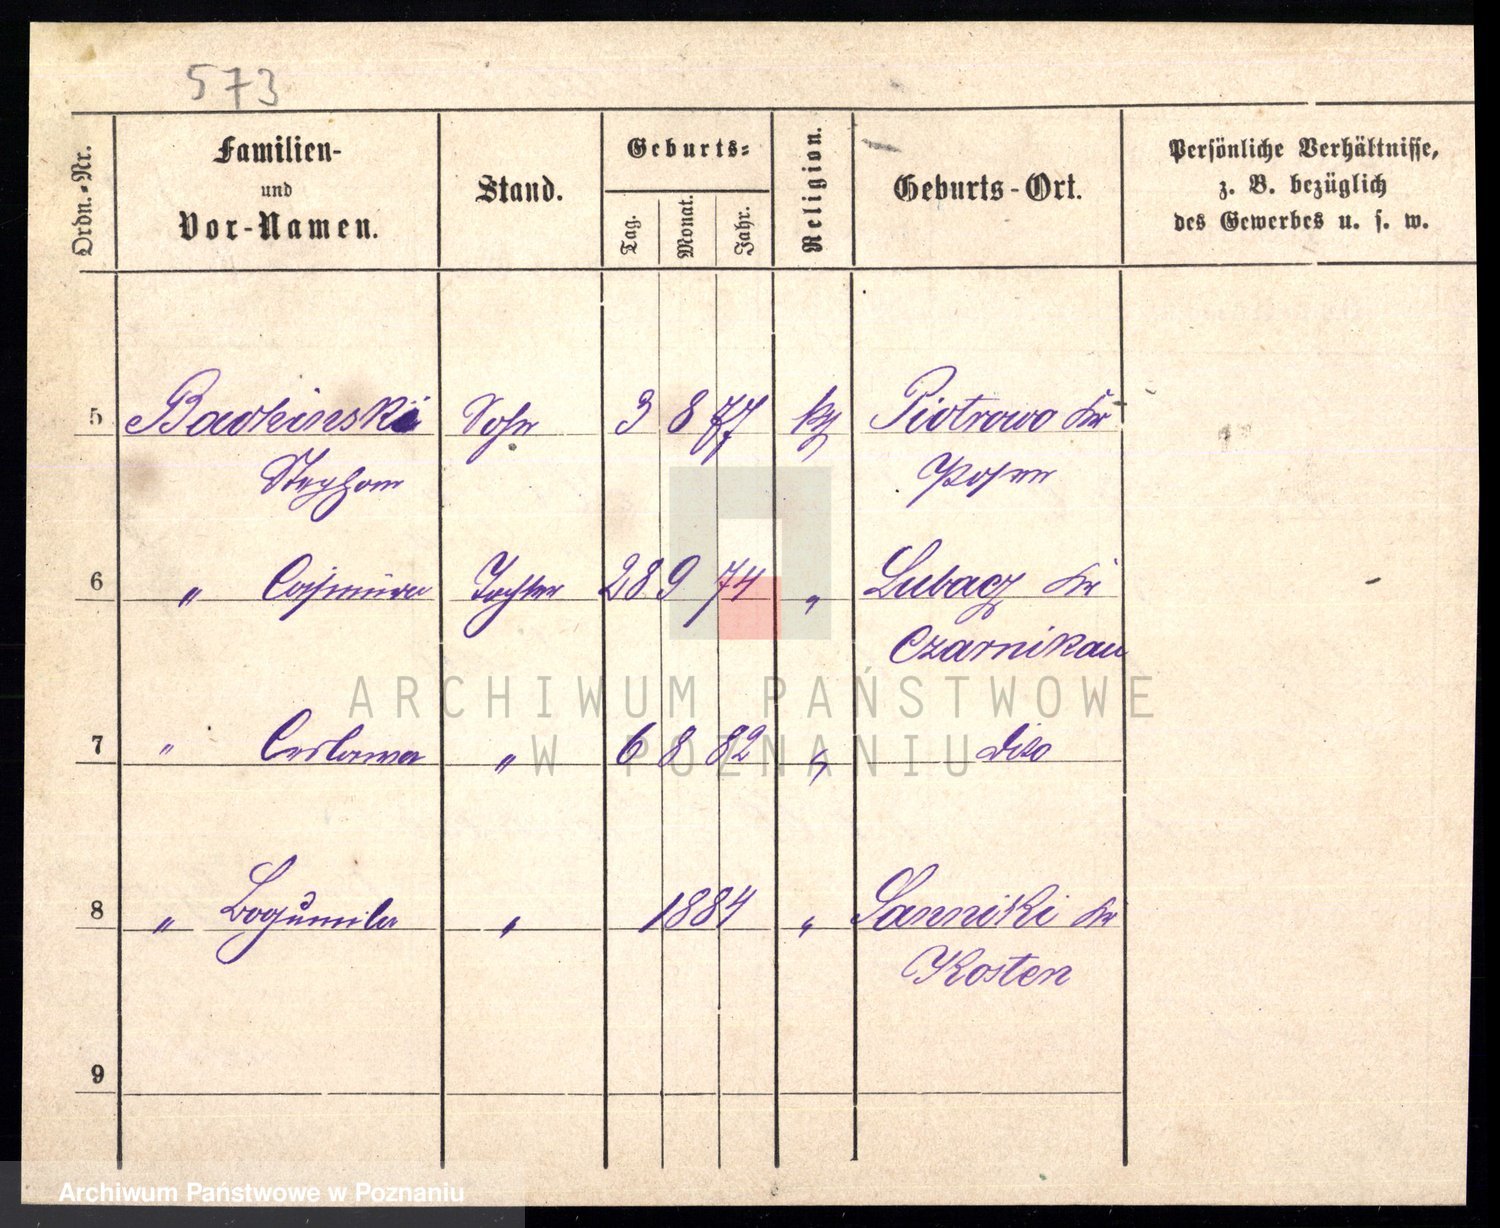 573
Ordn.-Nr.
Familien-
und
Vor-Namen.
Stand.
Geburts-
Tag.
Monat.
Jahr.
Religion.
Geburts-Ort.
Persönliche Verhältnisse,
z. B. bezüglich
des Gewerbes u. s. w.
5 Sohn 3 8 77 kth Piotrowo Kr
Stephan Posen
6 " Casimira Tochter 28 9 74 " Lubacz Kr
Czarnikau
ARCHIWUM PAŃSTWOWE
7 " Ceslawa " 6 8 82 " dito
W POZNANIU
8 " Bogumila " 1884 " Sanniki Kr
Kosten
9
Archiwum Państwowe w Poznaniu